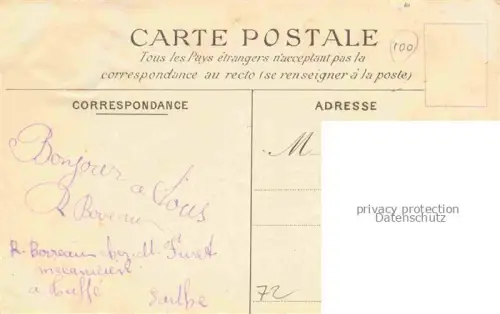 CARTE POSTALE
Tous les Pays étrangers n'acceptent pas la
correspondance au recto (se renseigner à la poste)
100
CORRESPONDANCE
ADRESSE
Bonjour
à Tous
R Borreau
R. Borreau chez Mr Furet
mecanicien
a Tuffé
Sarthe
M
72
privacy protection
Datenschutz